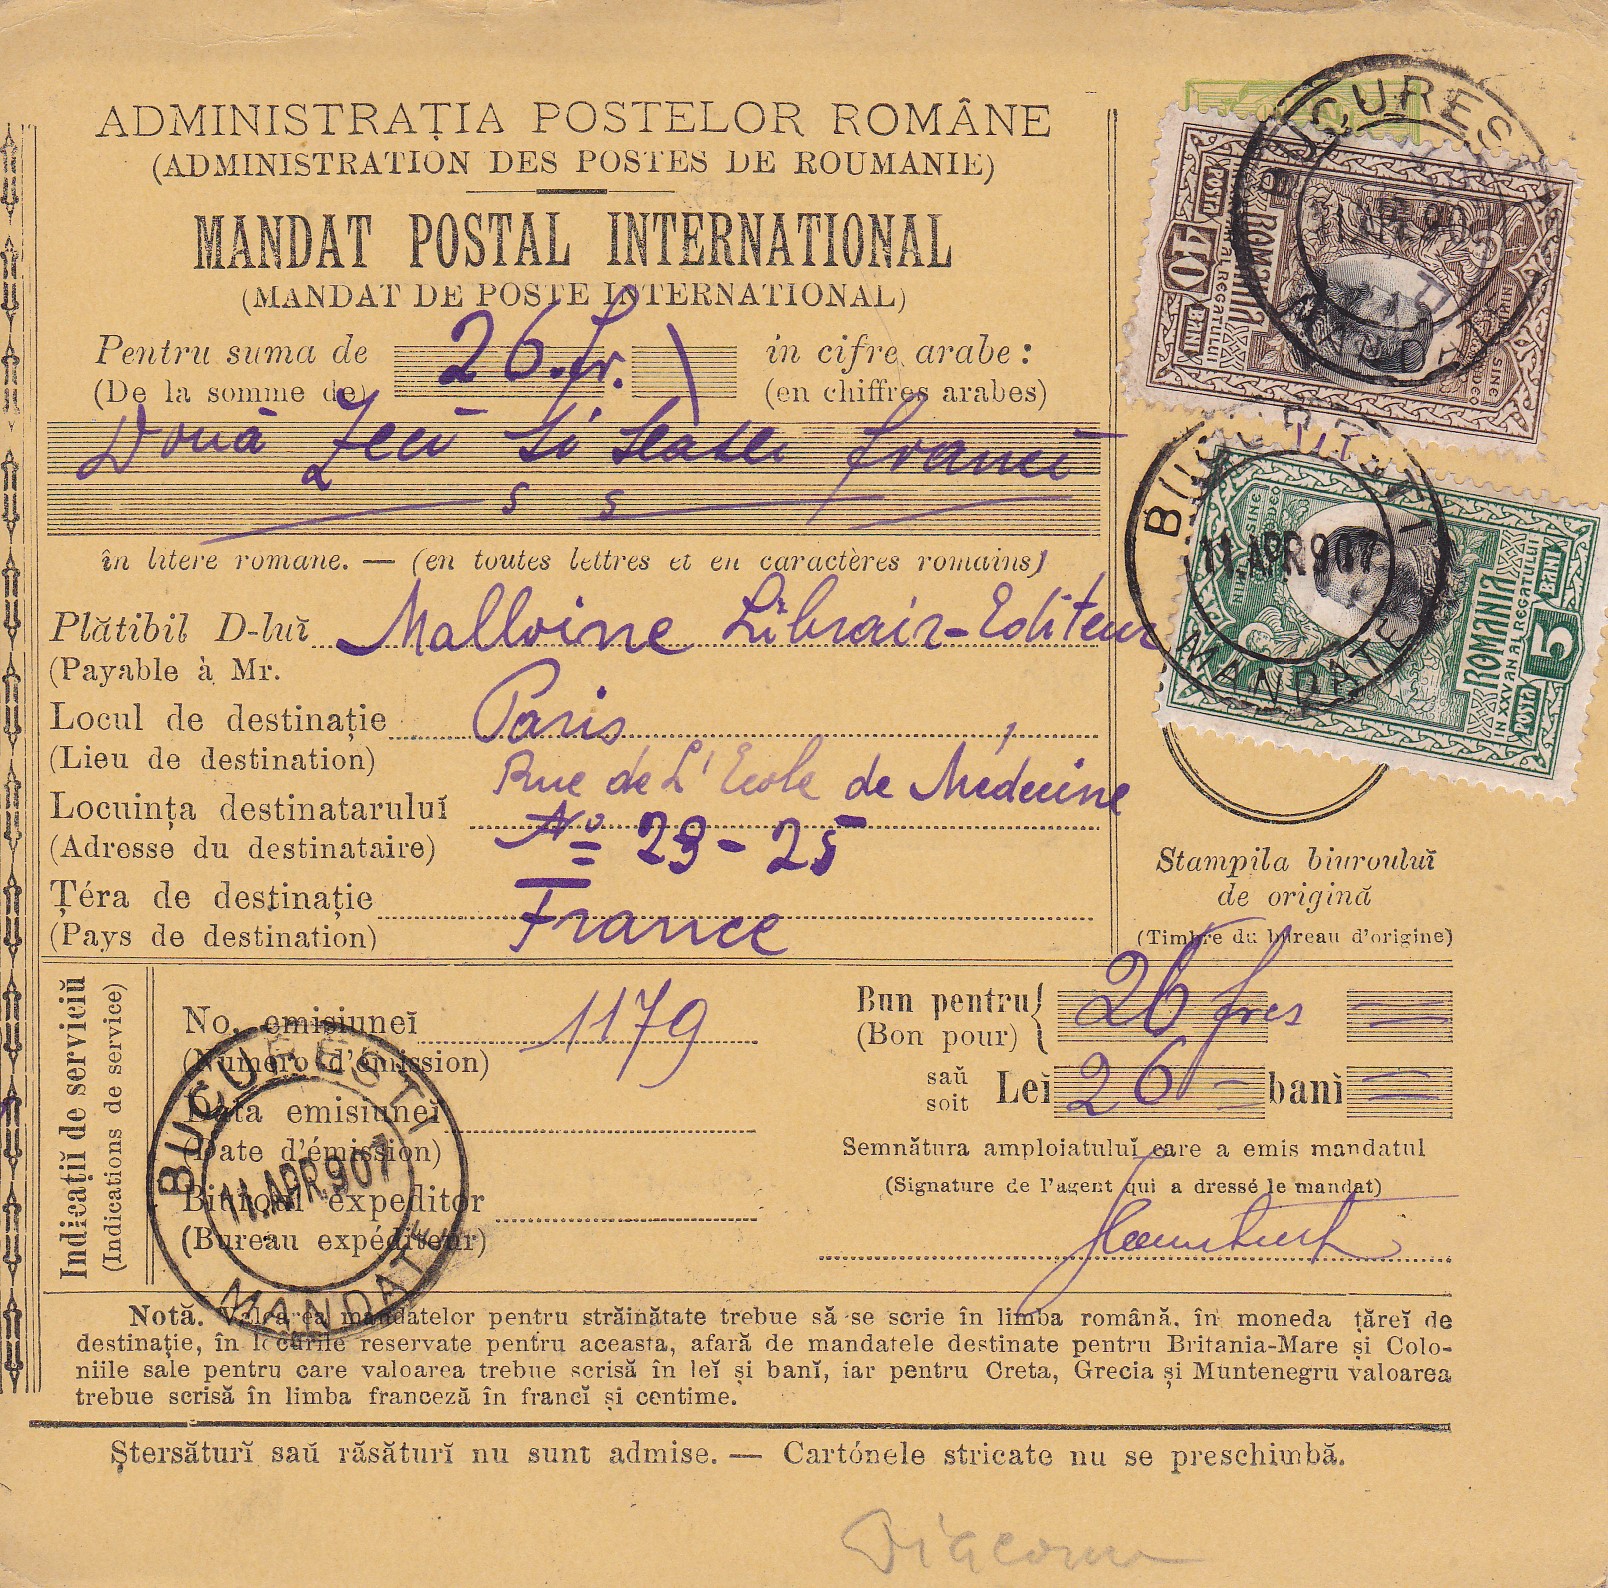 ADMINISTRAȚIA POSTELOR ROMÂNE
(ADMINISTRATION DES POSTES DE ROUMANIE)
MANDAT POSTAL INTERNATIONAL
(MANDAT DE POSTE INTERNATIONAL)
Pentru suma de 26. fr. in cifre arabe:
(De la somme de) (en chiffres arabes)
Două Zeci si sease franci
în litere romane. — (en toutes lettres et en caractères romains)
Plătibil D-luĭ Malloine Librair-Editeur
(Payable à Mr.
Locul de destinație Paris,
(Lieu de destination)
Rue de L'Ecole de Médecine
Locuința destinataruluĭ
No 23-25
(Adresse du destinataire)
Țéra de destinație France
(Pays de destination)
BUCURESTI
11 APR 907
MANDATE
40 BANI
POSTA
ROMANIA
BUCURESTI
11.APR.907
MANDATE
ROMANIA
IN XXV AN AL REGATULUI
POSTA 5 BANI
Stampila biurouluĭ
de origină
(Timbre du bureau d'origine)
Indicațiĭ de serviciŭ
(Indications de service)
No. emisiuneĭ 1179
(Numéro d'émission)
Data emisiuneĭ
(Date d'émission)
Biuroul expeditor
(Bureau expéditeur)
BUCURESTI
11.APR.907
MANDATE
Bun pentru 26 frcs
(Bon pour)
saŭ
soit
Leĭ 26 banĭ
Semnătura amploiatuluĭ care a emis mandatul
(Signature de l'agent qui a dressé le mandat)
Notă. Valoarea mandatelor pentru străinătate trebue să se scrie în limba română, în moneda țăreĭ de
destinație, în locurile reservate pentru aceasta, afară de mandatele destinate pentru Britania-Mare și Colo-
niile sale pentru care valoarea trebue scrisă în leĭ și banĭ, iar pentru Creta, Grecia și Muntenegru valoarea
trebue scrisă în limba franceză în francĭ și centime.
Ștersăturĭ saŭ răsăturĭ nu sunt admise. — Cartónele stricate nu se preschimbă.